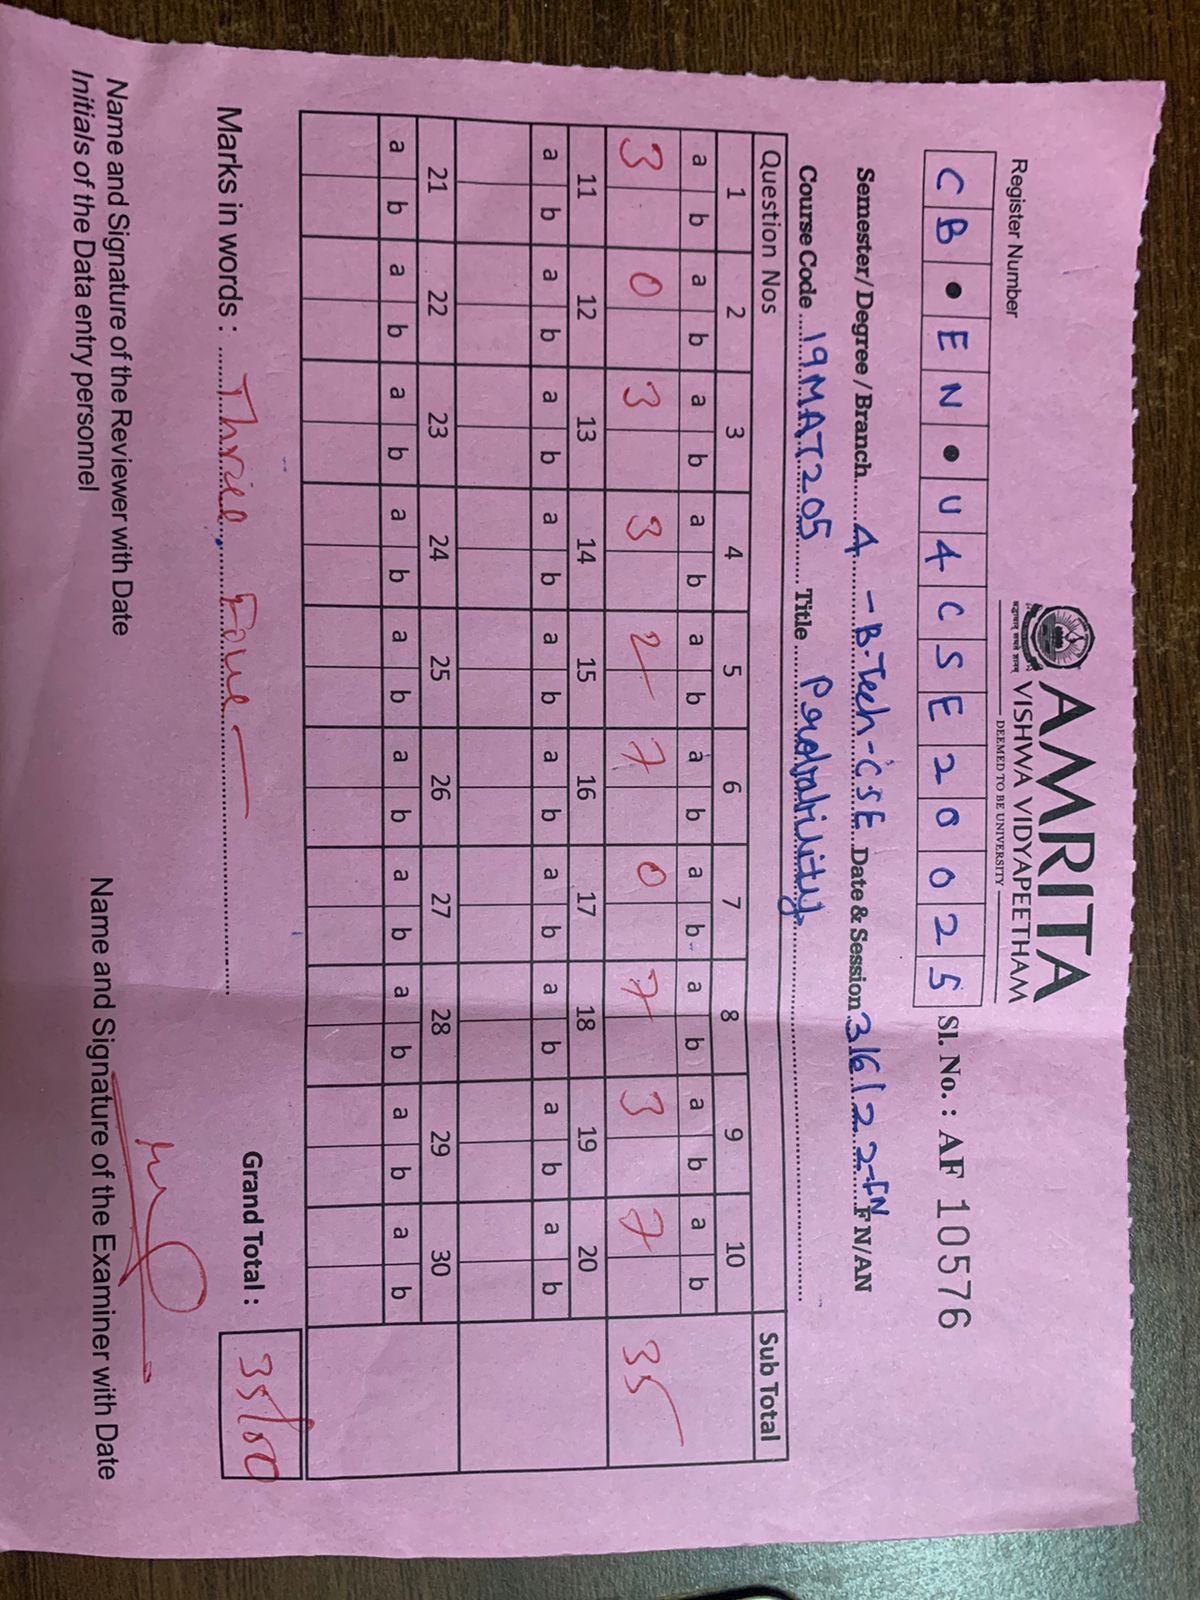 AMRITA
VISHWA VIDYAPEETHAM
DEEMED TO BE UNIVERSITY
Register Number
CB.EN.U4CSE20025 Sl. No. : AF 10576
Semester/ Degree / Branch 4 - B.Tech - CSE Date & Session 3/6/22-FN FN/AN
Course Code 19MAT205 Title Probability
Question Nos Sub Total
1 2 3 4 5 6 7 8 9 10
a b a b a b a b a b a b a b a b a b a b
3 0 3 3 2 7 0 7 3 7 35
11 12 13 14 15 16 17 18 19 20
a b a b a b a b a b a b a b a b a b a b
21 22 23 24 25 26 27 28 29 30
a b a b a b a b a b a b a b a b a b a b
Marks in words : Three Grand Total : 35/100
Name and Signature of the Reviewer with Date Name and Signature of the Examiner with Date
Initials of the Data entry personnel